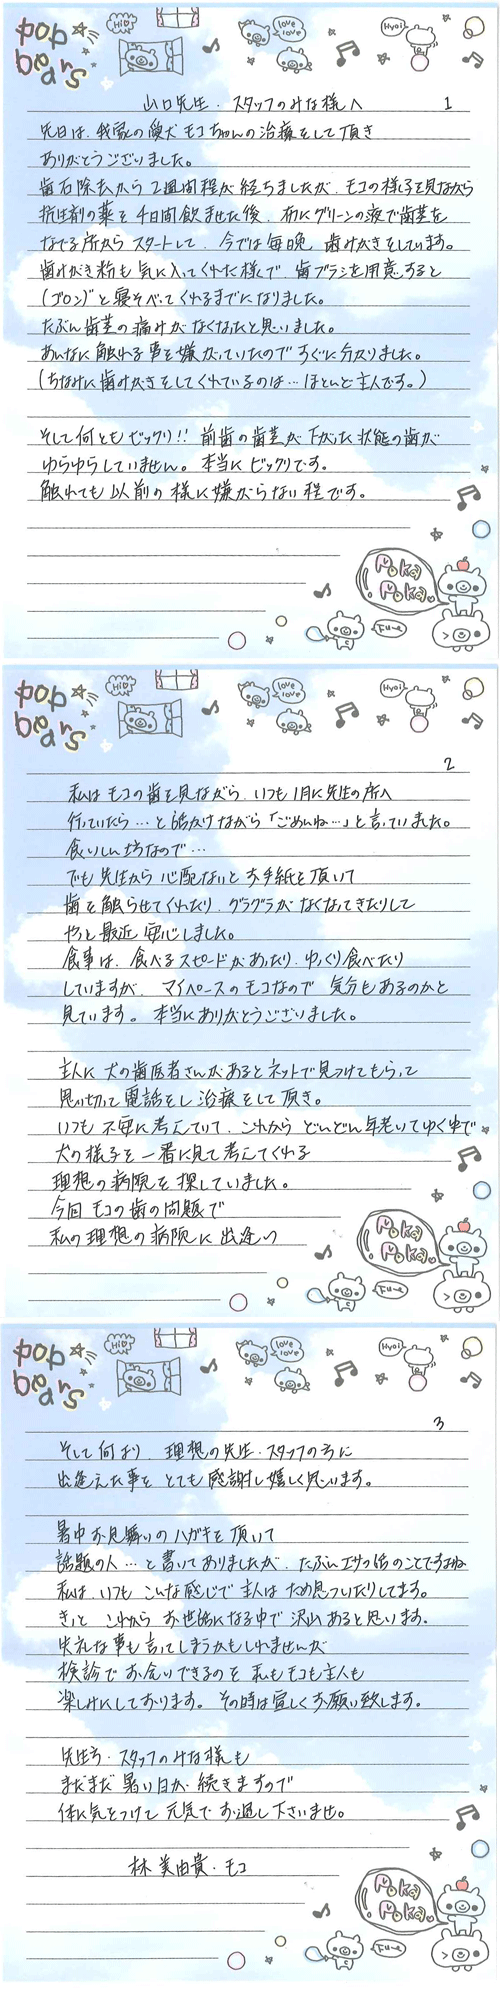 pop bears
Hi
love love
Hyoi
山口先生・スタッフのみな様へ
1
先日は、我家の愛犬モコちゃんの治療をして頂き
ありがとうございました。
歯石除去から2週間程が経ちましたが、モコの様子を見ながら
抗生剤の薬を4日間飲ませた後、布にグリーンの液で歯茎を
なでる所からスタートして、今では毎日晩歯みがきをしています。
歯みがき粉も気に入ってくれた様で、歯ブラシを用意すると
(ゴロン)と寝そべってくれるまでになりました。
たぶん歯茎の痛みがなくなったと思いました。
あんなに触れる事を嫌がっていたのですぐに分かりました。
(ちなみに歯みがきをしてくれているのは…ほとんど主人です。)
そして何ともビックリ!!前歯の歯茎が下がった状態の歯が
ゆらゆらしていません。本当にビックリです。
触れても以前の様に嫌がらない程です。
Poka Poka
Fu~
pop bears
Hi
love love
Hyoi
2
私はモコの歯を見ながら、いつも1月に先生の所へ
行っていたら…と話かけながら「ごめんね…」と言っていました。
食いしん坊なので…
でも先生から心配ないとお手紙を頂いて
歯を触らせてくれたり、グラグラがなくなってきたりして
やっと最近安心しました。
食事は、食べるスピードがあったり、ゆっくり食べたり
していますが、マイペースのモコなので気分もあるのかと
見ています。本当にありがとうございました。
主人に犬の歯医者さんがあるとネットで見つけてもらって
思い切って電話をし治療をして頂き。
いつも不安に考えていて、これからどんどん年老いてゆく中で
犬の様子を一番に見て考えてくれる
理想の病院を探していました。
今回モコの歯の問題で
私の理想の病院に出逢い
Poka Poka
Fu~
pop bears
Hi
love love
Hyoi
3
そして何より、理想の先生・スタッフの方に
出逢えた事をとても感謝し嬉しく思います。
暑中お見舞いのハガキを頂いて
話題の人…と書いてありましたが、たぶんエサの話のことですよね
私は、いつもこんな感じで主人はため息ついたりしてます。
きっとこれからお世話になる中で沢山あると思います。
失礼な事も言ってしまうかもしれませんが
検診でお会いできるのを私もモコも主人も
楽しみにしております。その時は宜しくお願い致します。
先生方・スタッフのみな様も
まだまだ暑い日が続きますので
体に気をつけて元気でお過し下さいませ。
林美由貴・モコ
Poka Poka
Fu~